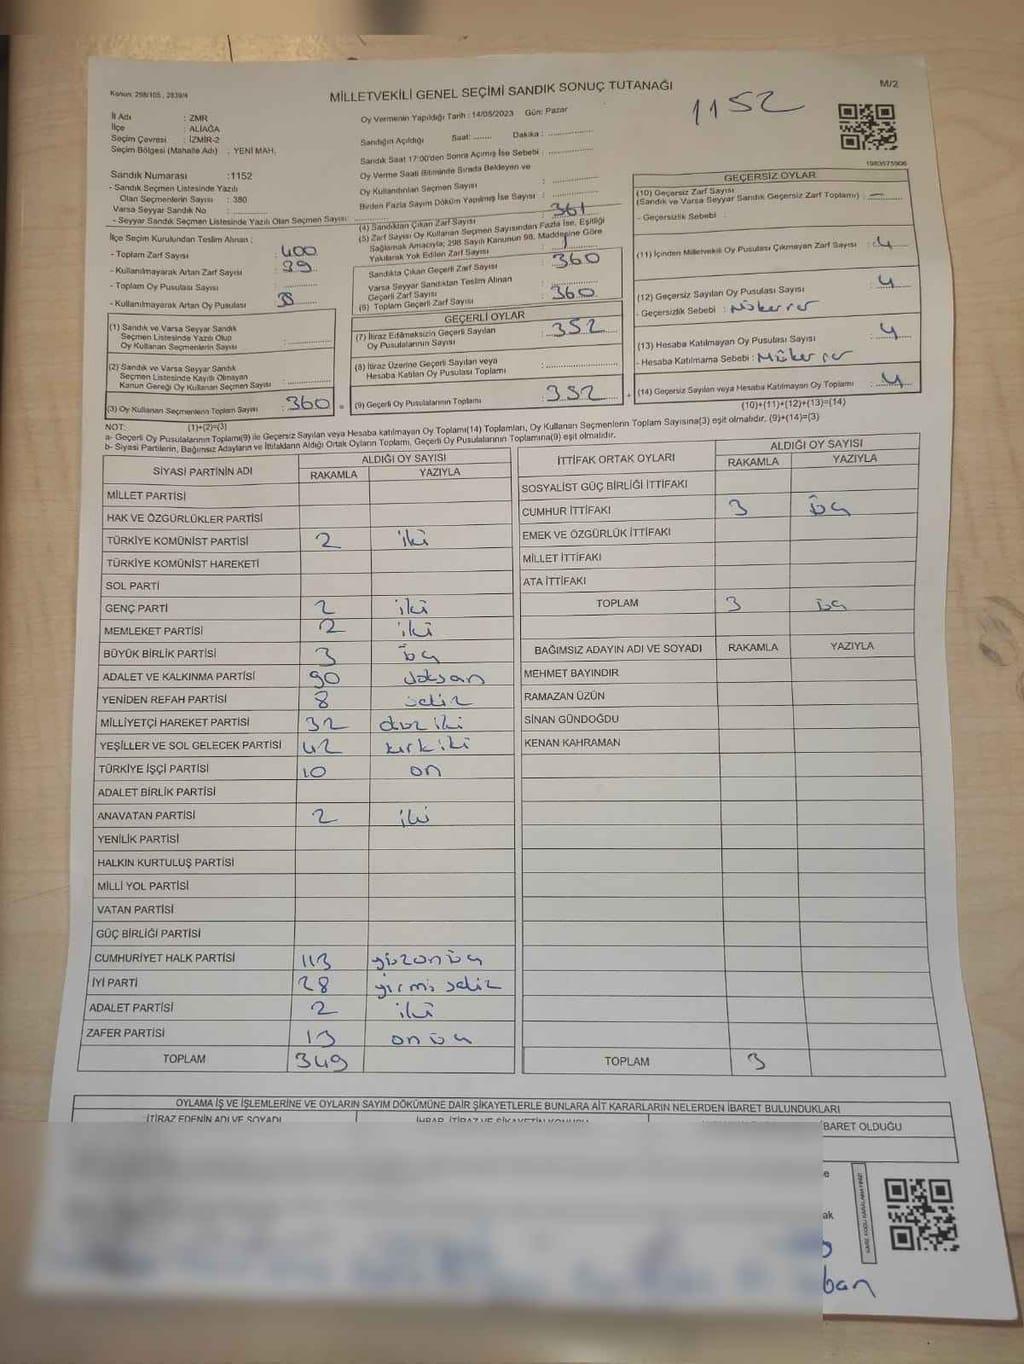 Kanun: 298/105, 2839/4
MİLLETVEKİLİ GENEL SEÇİMİ SANDIK SONUÇ TUTANAĞI
M/2
1152
İl Adı : ZMR
İlçe : ALİAĞA
Seçim Çevresi : İZMİR-2
Seçim Bölgesi (Mahalle Adı) : YENİ MAH.
Oy Vermenin Yapıldığı Tarih : 14/05/2023 Gün: Pazar
Sandığın Açıldığı Saat: ....... Dakika : ..............
Sandık Saat 17:00'den Sonra Açılmış İse Sebebi : ..............
Oy Verme Saati Bitiminde Sırada Bekleyen ve
Oy Kullandırılan Seçmen Sayısı : ..............
Birden Fazla Sayım Döküm Yapılmış İse Sayısı : ..............
1983575906
Sandık Numarası :1152
- Sandık Seçmen Listesinde Yazılı
Olan Seçmenlerin Sayısı : 380
Varsa Seyyar Sandık No : ..............
- Seyyar Sandık Seçmen Listesinde Yazılı Olan Seçmen Sayısı: ..............
İlçe Seçim Kurulundan Teslim Alınan ;
- Toplam Zarf Sayısı : 400
- Kullanılmayarak Artan Zarf Sayısı : 39
- Toplam Oy Pusulası Sayısı : ..............
- Kullanılmayarak Artan Oy Pusulası : 38
(1) Sandık ve Varsa Seyyar Sandık
Seçmen Listesinde Yazılı Olup
Oy Kullanan Seçmenlerin Sayısı : ..............
(2) Sandık ve Varsa Seyyar Sandık
Seçmen Listesinde Kayıtlı Olmayan
Kanun Gereği Oy Kullanan Seçmen Sayısı : ..............
(3) Oy Kullanan Seçmenlerin Toplam Sayısı : 360
(4) Sandıktan Çıkan Zarf Sayısı : 361
(5) Zarf Sayısı Oy Kullanan Seçmen Sayısından Fazla İse, Eşitliği
Sağlamak Amacıyla; 298 Sayılı Kanunun 98. Maddesine Göre
Yakılarak Yok Edilen Zarf Sayısı : 1
Sandıkta Çıkan Geçerli Zarf Sayısı : 360
Varsa Seyyar Sandıktan Teslim Alınan
Geçerli Zarf Sayısı : ..............
(6) Toplam Geçerli Zarf Sayısı : 360
GEÇERLİ OYLAR
(7) İtiraz Edilmeksizin Geçerli Sayılan
Oy Pusulalarının Sayısı : 352
(8) İtiraz Üzerine Geçerli Sayılan veya
Hesaba Katılan Oy Pusulası Toplamı : ..............
= (9) Geçerli Oy Pusulalarının Toplamı : 352
GEÇERSİZ OYLAR
(10) Geçersiz Zarf Sayısı
(Sandık ve Varsa Seyyar Sandık Geçersiz Zarf Toplamı) : —
- Geçersizlik Sebebi :
(11) İçinden Milletvekili Oy Pusulası Çıkmayan Zarf Sayısı : 4
(12) Geçersiz Sayılan Oy Pusulası Sayısı : 4
- Geçersizlik Sebebi : Mükerrer
(13) Hesaba Katılmayan Oy Pusulası Sayısı : 4
- Hesaba Katılmama Sebebi : Mükerrer
+ (14) Geçersiz Sayılan veya Hesaba Katılmayan Oy Toplamı : 4
NOT: (1)+(2)=(3)
(10)+(11)+(12)+(13)=(14)
a- Geçerli Oy Pusulalarının Toplamı(9) ile Geçersiz Sayılan veya Hesaba katılmayan Oy Toplamı(14) Toplamları, Oy Kullanan Seçmenlerin Toplam Sayısına(3) eşit olmalıdır. (9)+(14)=(3)
b- Siyasi Partilerin, Bağımsız Adayların ve İttifakların Aldığı Ortak Oyların Toplamı, Geçerli Oy Pusulalarının Toplamına(9) eşit olmalıdır.
SİYASİ PARTİNİN ADI ALDIĞI OY SAYISI
RAKAMLA YAZIYLA
MİLLET PARTİSİ
HAK VE ÖZGÜRLÜKLER PARTİSİ
TÜRKİYE KOMÜNİST PARTİSİ 2 iki
TÜRKİYE KOMÜNİST HAREKETİ
SOL PARTİ
GENÇ PARTİ 2 iki
MEMLEKET PARTİSİ 2 iki
BÜYÜK BİRLİK PARTİSİ 3 üç
ADALET VE KALKINMA PARTİSİ 90 doksan
YENİDEN REFAH PARTİSİ 8 sekiz
MİLLİYETÇİ HAREKET PARTİSİ 32 otuz iki
YEŞİLLER VE SOL GELECEK PARTİSİ 42 kırk iki
TÜRKİYE İŞÇİ PARTİSİ 10 on
ADALET BİRLİK PARTİSİ
ANAVATAN PARTİSİ 2 iki
YENİLİK PARTİSİ
HALKIN KURTULUŞ PARTİSİ
MİLLİ YOL PARTİSİ
VATAN PARTİSİ
GÜÇ BİRLİĞİ PARTİSİ
CUMHURİYET HALK PARTİSİ 113 yüzonüç
İYİ PARTİ 28 yirmi sekiz
ADALET PARTİSİ 2 iki
ZAFER PARTİSİ 13 onüç
TOPLAM 349
İTTİFAK ORTAK OYLARI ALDIĞI OY SAYISI
RAKAMLA YAZIYLA
SOSYALİST GÜÇ BİRLİĞİ İTTİFAKI
CUMHUR İTTİFAKI 3 üç
EMEK VE ÖZGÜRLÜK İTTİFAKI
MİLLET İTTİFAKI
ATA İTTİFAKI
TOPLAM 3 üç
BAĞIMSIZ ADAYIN ADI VE SOYADI RAKAMLA YAZIYLA
MEHMET BAYINDIR
RAMAZAN ÜZÜN
SİNAN GÜNDOĞDU
KENAN KAHRAMAN
TOPLAM 3
OYLAMA İŞ VE İŞLEMLERİNE VE OYLARIN SAYIM DÖKÜMÜNE DAİR ŞİKAYETLERLE BUNLARA AİT KARARLARIN NELERDEN İBARET BULUNDUKLARI
İTİRAZ EDENİN ADI VE SOYADI
İHBAR, İTİRAZ VE ŞİKAYETİN KONUSU
İBARET OLDUĞU
ak
ban